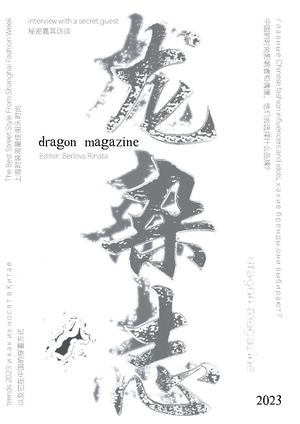 interview with a secret guest
秘密嘉宾访谈
龙
杂
志
dragon magazine
Editor: Berlova Rinata
The Best Street Style From Shanghai Fashion Week
上海时装周最佳街头时尚
главные Chinese fashion influencers and idols, какие бренды они выбирают?
中国的时尚影响者和偶像，他们会选择什么品牌？
trends 2023 и как их носят в Китае
以及它在中国的穿着方式
dragon magazine
2023